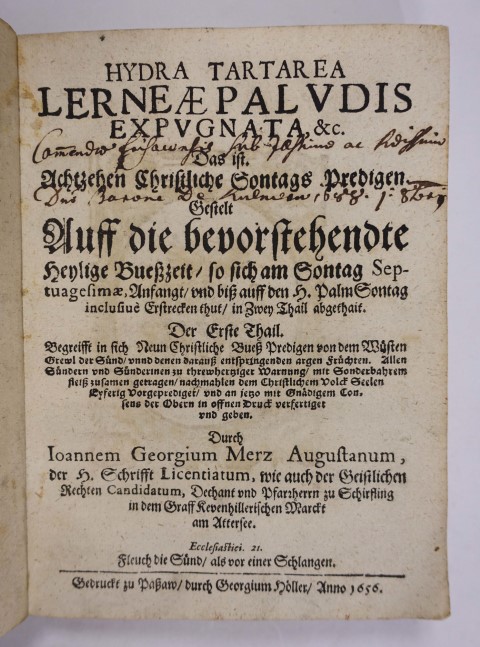 HYDRA TARTAREA
LERNEÆ PALVDIS
EXPVGNATA, &c.
Das ist.
Achtzehen Christliche Sontags Predigen.
1688.
Gestelt
Auff die bevorstehendte
Heylige Bueßzeit/ so sich am Sontag Sep-
tuagesimæ, Anfangt/ vnd biß auff den H. Palm Sontag
inclusiuè Erstrecken thut/ in Zwey Thail abgethait.
Der Erste Thail.
Begreifft in sich Neun Christliche Bueß Predigen von dem Wüsten
Grewl der Sünd/ vnnd denen darauß entspringenden argen Früchten. Allen
Sündern vnd Sünderinen zu threwhertziger Warnung/ mit Sonderbahrem
fleiß zusamen getragen/ nachmahlen dem Christlichem Volck Seelen
Eyferig Vorgeprediget/ vnd an jetzo mit Gnädigem Con-
sens der Obern in offnen Druck verfertiget
vnd geben.
Durch
Ioannem Georgium Merz Augustanum,
der H. Schrifft Licentiatum, wie auch der Geistlichen
Rechten Candidatum, Dechant vnd Pfarrherrn zu Schirfling
in dem Graff Kevenhillerischen Marckt
am Attersee.
Ecclesiastici. 21.
Fleuch die Sünd/ als vor einer Schlangen.
Gedruckt zu Paßaw/ durch Georgium Höller/ Anno 1656.